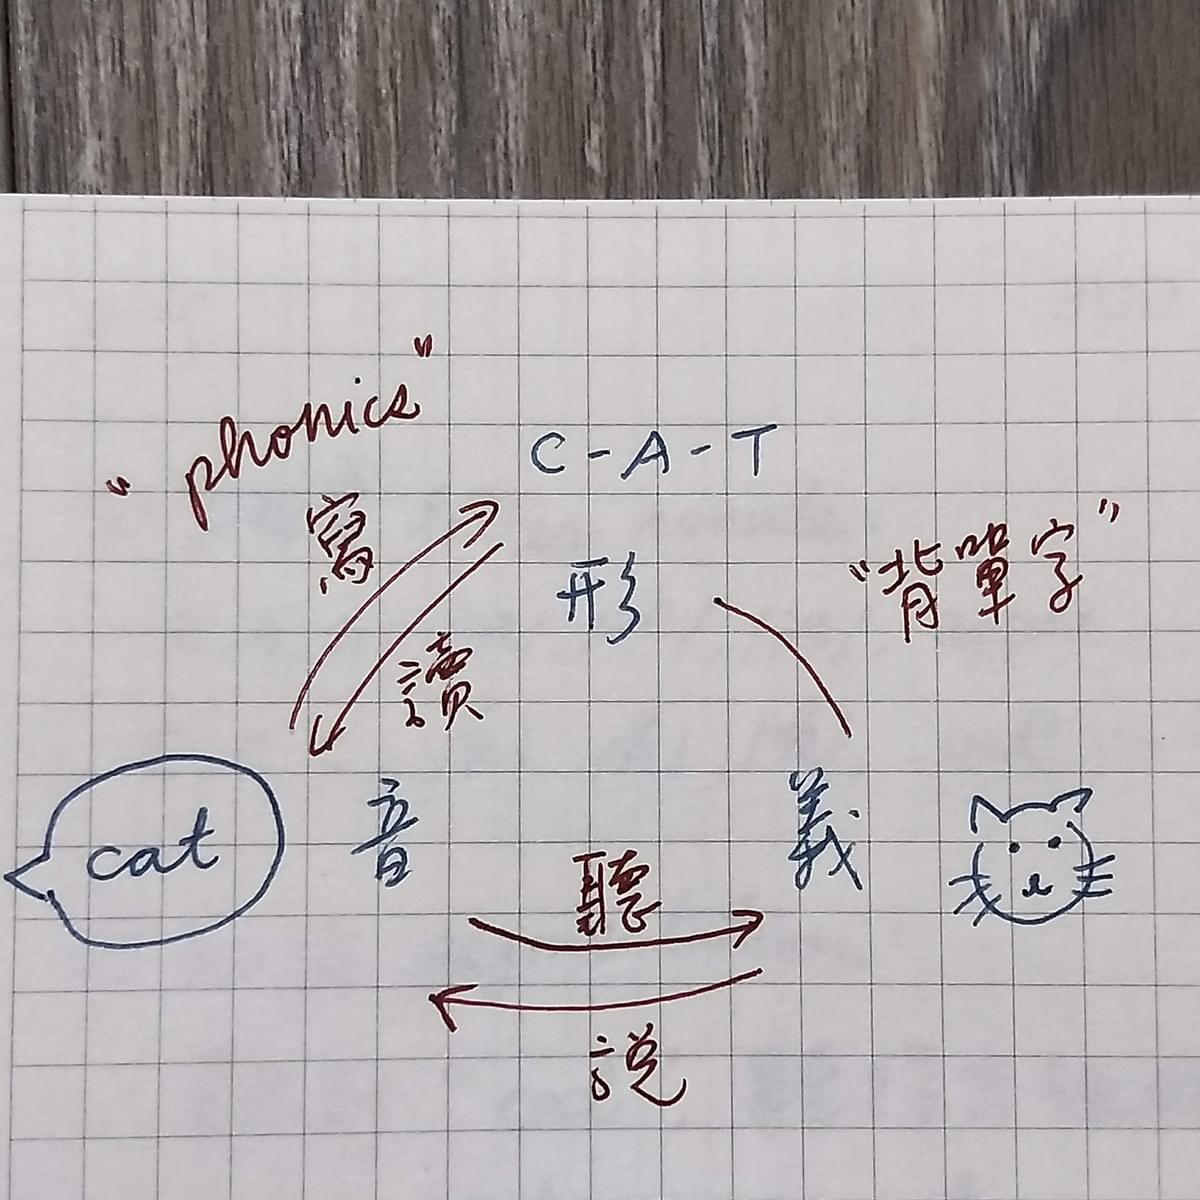 "phonics"
C-A-T
寫
形
"背單字"
讀
cat
音
義
聽
說